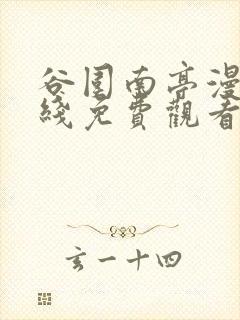 谷围南亭漫
綫免費觀看
玄一十四